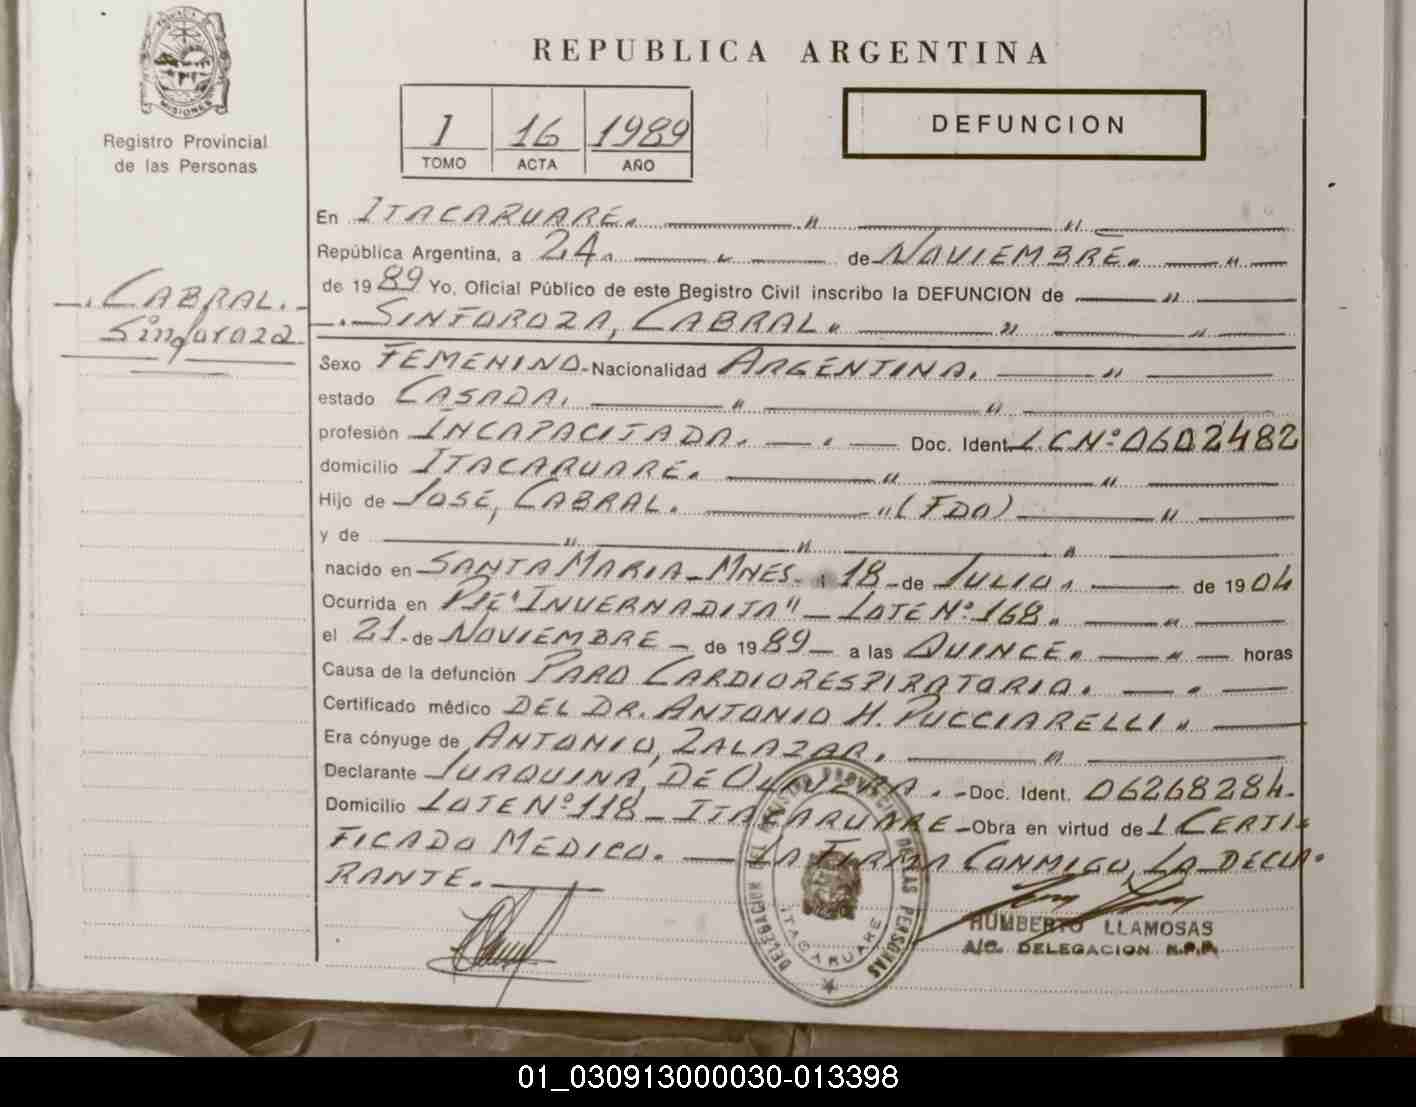 REPUBLICA ARGENTINA
MISIONES
Registro Provincial
de las Personas
1 16 1989
TOMO ACTA AÑO
DEFUNCION
CABRAL.
Sinforoza
En ITACARUARE.
República Argentina, a 24 de NOVIEMBRE.
de 1989 Yo, Oficial Público de este Registro Civil inscribo la DEFUNCION de
SINFOROZA, CABRAL.
Sexo FEMENINO - Nacionalidad ARGENTINA.
estado CASADA.
profesión INCAPACITADA. Doc. Ident. L.C.Nº 0602482
domicilio ITACARUARE.
Hijo de JOSE, CABRAL. (FDO)
y de
nacido en SANTA MARIA - MNES. 18 - de JULIO. de 1904
Ocurrida en PJE "INVERNADITA" - LOTE Nº 168.
el 21 - de NOVIEMBRE - de 1989 - a las QUINCE. horas
Causa de la defunción PARO CARDIORESPIRATORIO.
Certificado médico DEL DR. ANTONIO H. PUCCIARELLI
Era cónyuge de ANTONIO, ZALAZAR.
Declarante JUAQUINA, DE OLIVERA. - Doc. Ident. 06268284.
Domicilio LOTE Nº 118 - ITACARUARE - Obra en virtud de 1 CERTI-
FICADO MEDICO. LA FIRMA CONMIGO, LA DECLA-
RANTE.
DELEGACION DEL REGISTRO PROVINCIAL DE LAS PERSONAS
ITACARUARE
HUMBERTO LLAMOSAS
A/C. DELEGACION R.P.P.
01_030913000030-013398